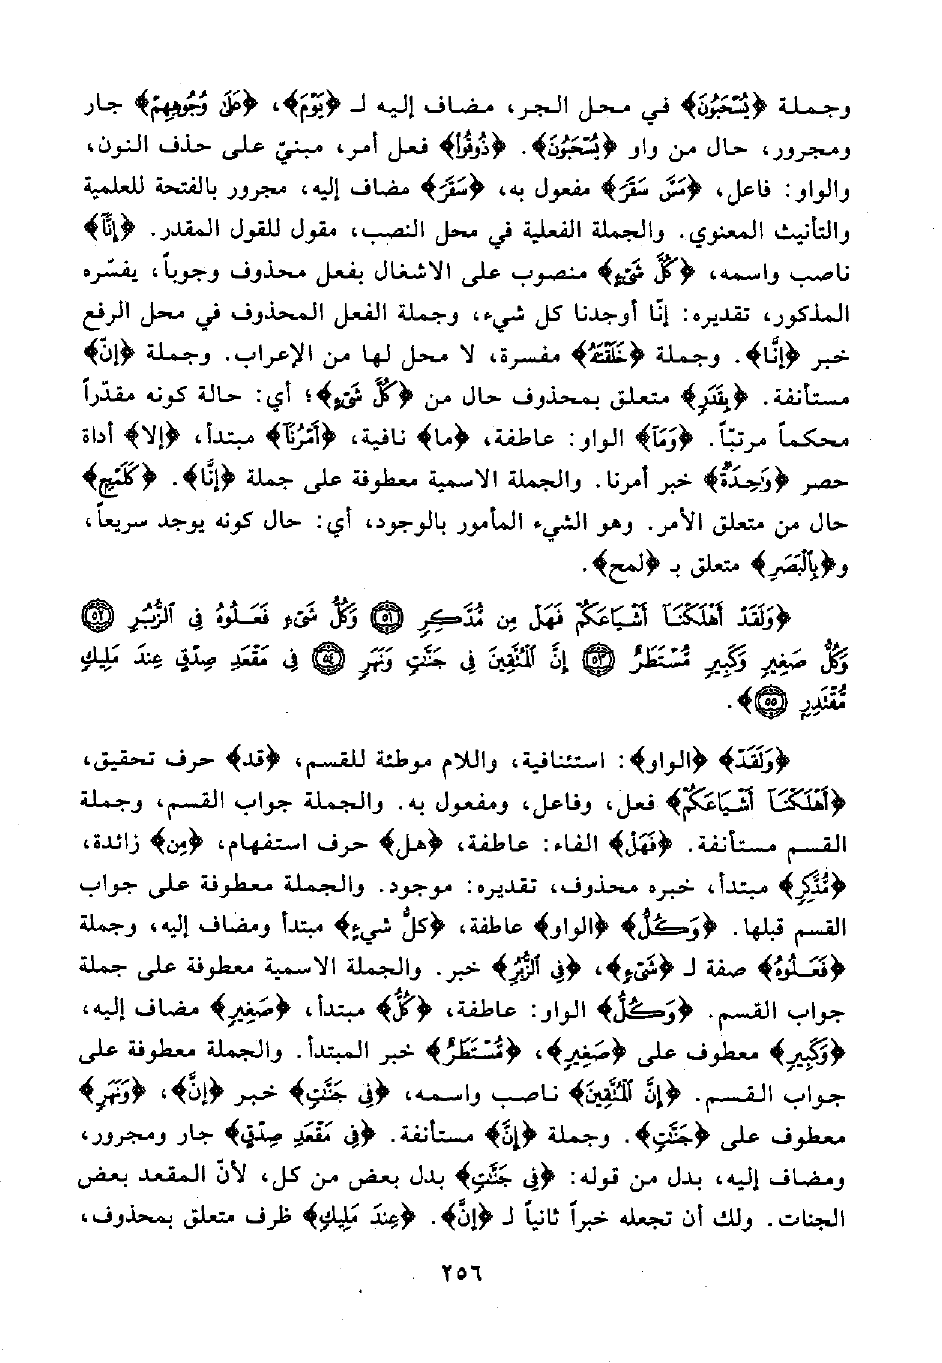 وجملة ﴿يُسْحَبُونَ﴾ في محل الجر، مضاف إليه لـ ﴿يَوْمَ﴾، ﴿عَلَىٰ وُجُوهِهِمْ﴾ جار
ومجرور، حال من واو ﴿يُسْحَبُونَ﴾. ﴿ذُوقُوا۟﴾ فعل أمر، مبنيّ على حذف النون،
والواو: فاعل، ﴿مَسَّ سَقَرَ﴾ مفعول به، ﴿سَقَرَ﴾ مضاف إليه، مجرور بالفتحة للعلمية
والتأنيث المعنوي. والجملة الفعلية في محل النصب، مقول للقول المقدر. ﴿إِنَّا﴾
ناصب واسمه، ﴿كُلَّ شَىْءٍ﴾ منصوب على الاشغال بفعل محذوف وجوباً، يفسّره
المذكور، تقديره: إنّا أوجدنا كل شيء، وجملة الفعل المحذوف في محل الرفع
خبر ﴿إِنَّا﴾. وجملة ﴿خَلَقْنَٰهُ﴾ مفسرة، لا محل لها من الإعراب. وجملة ﴿إنّ﴾
مستأنفة. ﴿بِقَدَرٍ﴾ متعلق بمحذوف حال من ﴿كُلَّ شَىْءٍ﴾؛ أي: حالة كونه مقدّراً
محكماً مرتبّاً. ﴿وَمَآ﴾ الواو: عاطفة، ﴿ما﴾ نافية، ﴿أَمْرُنَآ﴾ مبتدأ، ﴿إلا﴾ أداة
حصر ﴿وَٰحِدَةٌ﴾ خبر أمرنا. والجملة الاسمية معطوفة على جملة ﴿إِنَّا﴾. ﴿كَلَمْحٍ﴾
حال من متعلق الأمر. وهو الشيء المأمور بالوجود، أي: حال كونه يوجد سريعاً،
و﴿بِٱلْبَصَرِ﴾ متعلق بـ ﴿لمح﴾.
﴿وَلَقَدْ أَهْلَكْنَآ أَشْيَاعَكُمْ فَهَلْ مِن مُّدَّكِرٍ ٥١ وَكُلُّ شَىْءٍ فَعَلُوهُ فِى ٱلزُّبُرِ ٥٢
وَكُلُّ صَغِيرٍ وَكَبِيرٍ مُّسْتَطَرٌ ٥٣ إِنَّ ٱلْمُتَّقِينَ فِى جَنَّٰتٍ وَنَهَرٍ ٥٤ فِى مَقْعَدِ صِدْقٍ عِندَ مَلِيكٍ
مُّقْتَدِرٍۭ ٥٥﴾.
﴿وَلَقَدْ﴾ ﴿الواو﴾: استئنافية، واللام موطئة للقسم، ﴿قد﴾ حرف تحقيق،
﴿أَهْلَكْنَآ أَشْيَاعَكُمْ﴾ فعل، وفاعل، ومفعول به. والجملة جواب القسم، وجملة
القسم مستأنفة. ﴿فَهَلْ﴾ الفاء: عاطفة، ﴿هل﴾ حرف استفهام، ﴿مِن﴾ زائدة،
﴿مُّدَّكِرٍ﴾ مبتدأ، خبره محذوف، تقديره: موجود. والجملة معطوفة على جواب
القسم قبلها. ﴿وَكُلُّ﴾ ﴿الواو﴾ عاطفة، ﴿كلُّ شيءٍ﴾ مبتدأ ومضاف إليه، وجملة
﴿فَعَلُوهُ﴾ صفة لـ ﴿شَىْءٍ﴾، ﴿فِى ٱلزُّبُرِ﴾ خبر. والجملة الاسمية معطوفة على جملة
جواب القسم. ﴿وَكُلُّ﴾ الواو: عاطفة، ﴿كُلُّ﴾ مبتدأ، ﴿صَغِيرٍ﴾ مضاف إليه،
﴿وَكَبِيرٍ﴾ معطوف على ﴿صَغِيرٍ﴾، ﴿مُّسْتَطَرٌ﴾ خبر المبتدأ. والجملة معطوفة على
جواب القسم. ﴿إِنَّ ٱلْمُتَّقِينَ﴾ ناصب واسمه، ﴿فِى جَنَّٰتٍ﴾ خبر ﴿إِنَّ﴾، ﴿وَنَهَرٍ﴾
معطوف على ﴿جَنَّٰتٍ﴾. وجملة ﴿إِنَّ﴾ مستأنفة. ﴿فِى مَقْعَدِ صِدْقٍ﴾ جار ومجرور،
ومضاف إليه، بدل من قوله: ﴿فِى جَنَّٰتٍ﴾ بدل بعض من كل، لأنّ المقعد بعض
الجنات. ولك أن تجعله خبراً ثانياً لـ ﴿إِنَّ﴾. ﴿عِندَ مَلِيكٍ﴾ ظرف متعلق بمحذوف،
٢٥٦